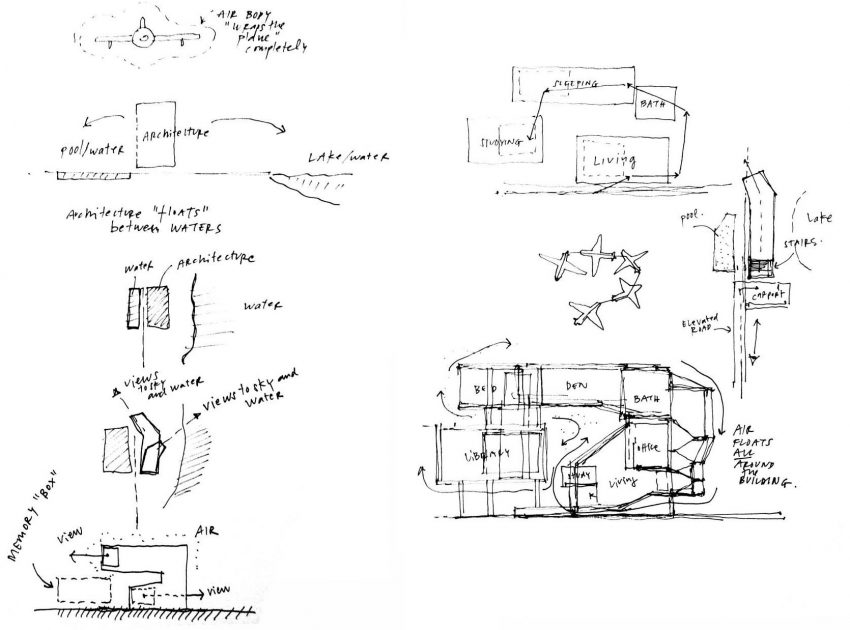 AIR BODY
"WRAPS the
plane"
completely
Architecture
pool/water
LAKE/WATER
Architecture "floats"
between WATERS
water
ARchitecture
water
views
to sky
and water
views to sky and
water
MEMORY "BOX"
AIR
view
view
SLEEPING
BATH
STUDYING
Living
pool.
Lake
STAIRS.
CARPORT
ELEVATED
ROAD
BED
DEN
BATH
LIBRARY
OFFICE
Living
K
AIR
FLOATS
ALL
AROUND
the
BUILDING.